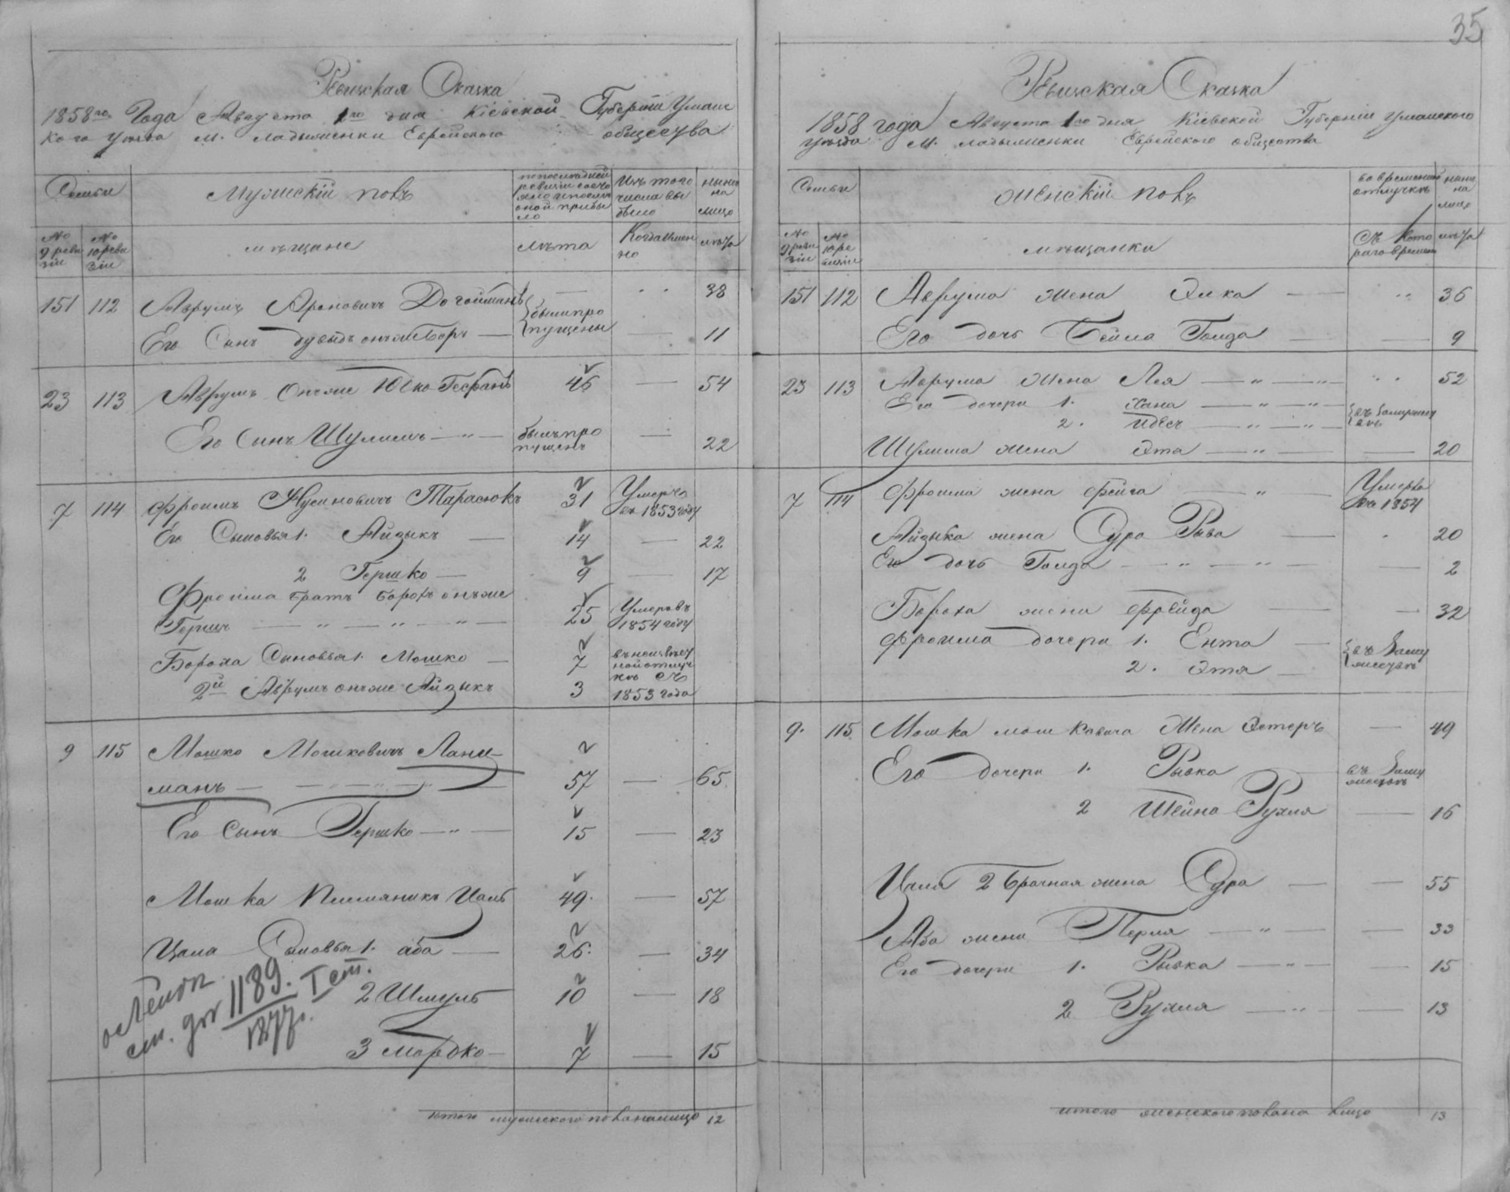 35
Ревизская Сказка
1858го Года Августа 1го дня Кіевской Губерніи Уманс
кого уезда м. Ладыженки Еврейского общесува
Семьи
Мужескій полъ
по последней ревизіи состо
было
ныне на лицо
No 9 реви зіи
No 10 реви зіи
мещане
лета
Когда имен но
лета
151 112 Аврумъ Ароновичъ — 38
Его Сынъ онъ же Беръ — были про пущены — 11
23 113 Аврумъ Онъ же Юско 46 — 54
Его Сынъ Шулимъ — былъ про пущенъ — 22
7 114 Фроимъ Нусиновичъ Тарасюкъ 31 Умеръ въ 1853 году
Его Сыновья 1. Айзыкъ — 14 — 22
2 Гершко — 9 — 17
Фроима братъ Борохъ онъ же
Гершъ 25 Умеръ въ 1854 году
Бороха Сыновья 1. Мошко — 7
2й Аврумъ онъ же Айзыкъ 3
въ неизвест ной отлуч ке съ 1853 года
9 115 Мошко Мошковичъ Лани-
манъ — 57 — 65
Его Сынъ Гершко — 15 — 23
Мошка Племяникъ Цаль 49. — 57
Цаля Сыновья 1. Аба — 26. — 34
2 Шмуль 10 — 18
3 Мордко — 7 — 15
см. 1189. I ст.
1877.
итого мужеского пола на лицо 12
Ревизская Сказка
1858 года Августа 1го дня Кіевской Губерніи Уманского
уезда м. Ладыженки Еврейского общества
Семьи
женскій полъ
во временной отлучке
ныне на лицо
No 9 реви зіи
No 10 ре визіи
мещанки
Съ кото раго времени
лета
151 112 Аврума жена Элка — 36
Его дочь Бейла Голда — 9
23 113 Аврума Жена Лея — 52
Его дочери 1. Хана —
2. —
въ замужест ве
Шулима жена Эта — 20
7 114 Фроима жена Фейга — Умерла въ 1854
Айзыка жена Сура Рыва — 20
Его дочь Голда — 2
Бороха жена Фрейда — 32
Фроима дочери 1. Ента —
2. Этя —
въ Заму жестве
9. 115 Мошка Мошковича Жена Эстеръ — 49
Его дочери 1. Рывка — въ Заму жестве
2 Шейна Рухля — 16
Цаля 2 брачная жена Сура — 55
Аба жена Перля — 33
Его дочери 1. Рывка — 15
2 Рухля — 13
итого женского пола на лицо 13